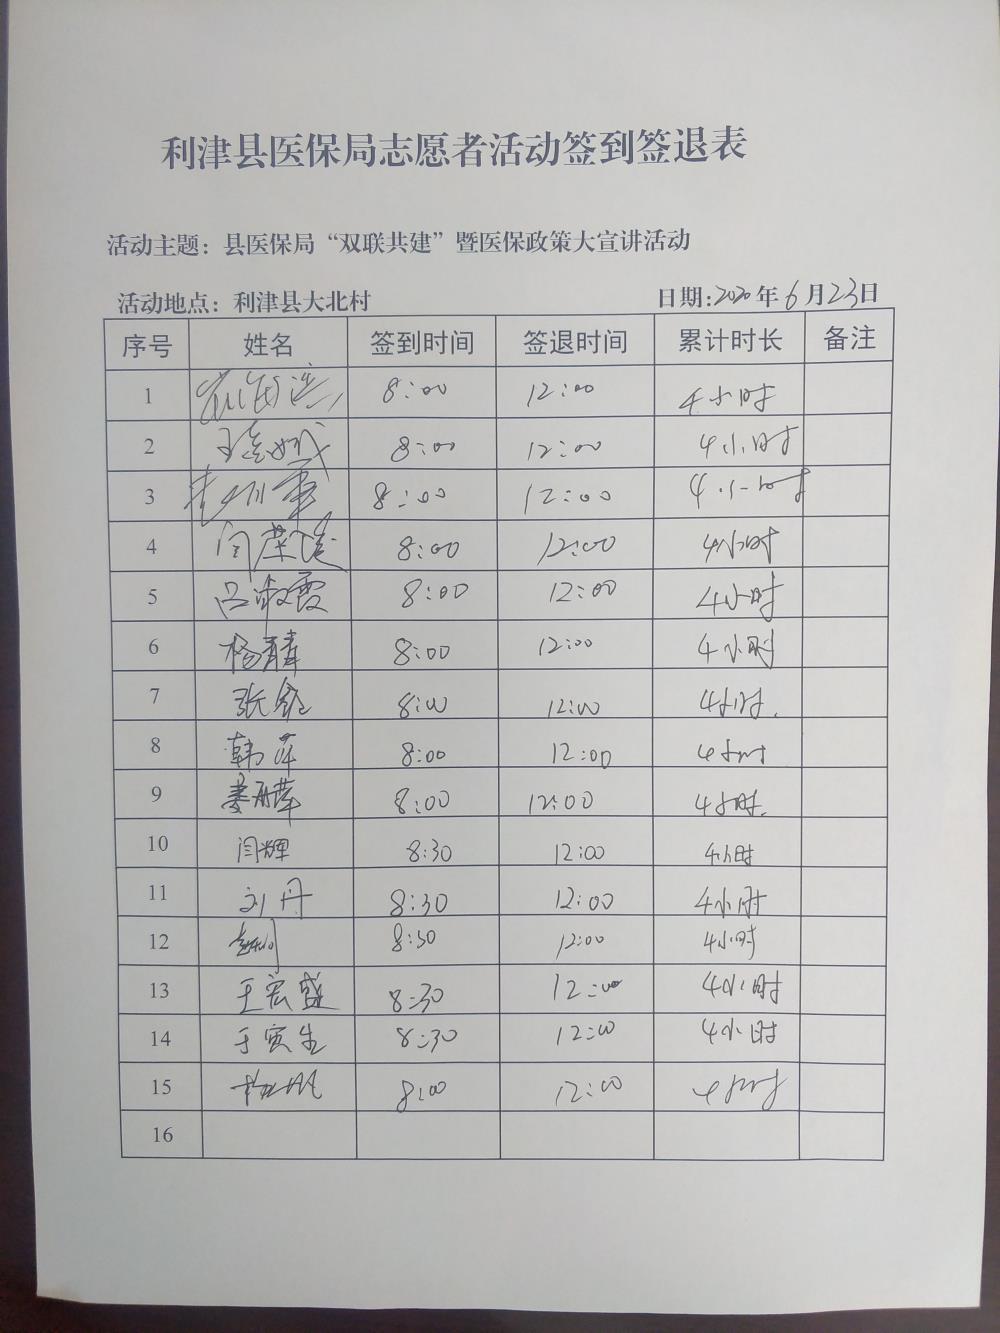 利津县医保局志愿者活动签到签退表
活动主题：县医保局“双联共建”暨医保政策大宣讲活动
活动地点：利津县大北村 日期:2020年6月23日
序号 姓名 签到时间 签退时间 累计时长 备注
1 8:00 12:00 4小时
2 8:00 12:00 4小时
3 8:00 12:00 4小时
4 闫荣 8:00 12:00 4小时
5 吕淑霞 8:00 12:00 4小时
6 杨 8:00 12:00 4小时
7 张 8:00 12:00 4小时.
8 韩萍 8:00 12:00 4小时
9 8:00 12:00 4小时.
10 闫辉 8:30 12:00 4小时
11 刘丹 8:30 12:00 4小时
12 8:30 12:00 4小时
13 王宏盛 8:30 12:00 4小时
14 于寅生 8:30 12:00 4小时
15 8:00 12:00 4小时
16